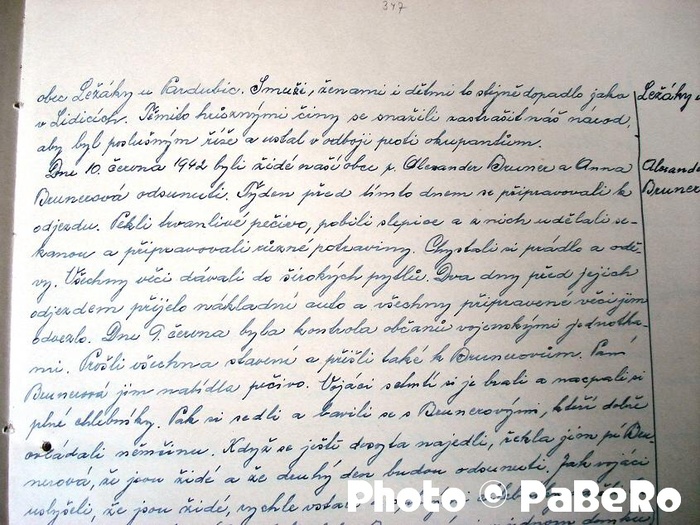 347
obec Ležáky u Pardubic. S muži, ženami i dětmi to stejně dopadlo jako
Ležáky
v Lidicích. Těmito hrůznými činy se snažili zastrašit náš národ,
aby byl poslušným říše a ustal v odboji proti okupantům.
Dne 10. června 1942 byli židé naší obce p. Alexander Bruner a Anna
Brunerová odsunuti. Týden před tímto dnem se připravovali k
Bruner
odjezdu. Pekli trvanlivé pečivo, pobili slepice a z nich udělali se-
kanou a připravovali různé potraviny. Chystali si prádlo a odě-
vy. Všechny věci dávali do širokých pytlů. Dva dny před jejich
odjezdem přijelo nákladní auto a všechny připravené věci jim
odvezlo. Dne 9. června byla kontrola občanů vojenskými jednotka-
mi. Prošli všechna stavení a přišli také k Brunerovům. Paní
Brunerová jim nabídla pečivo. Vojáci si je brali a nacpali si
plné chlebníky. Pak si sedli a bavili se s Brunerovými, kteří dobře
ovládali němčinu. Když se ještě dosyta najedli, řekla jim pí Bru-
nerová, že jsou židé a že druhý den budou odsunuti. Jak vojáci
uslyšeli, že jsou židé, rychle
Photo © PaBeRo